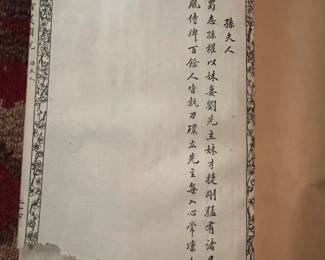 孫夫人
蜀志孫權以妹妻劉先主妹才捷剛猛有諸兄
風侍婢百餘人皆執刀環立先主每入心常凜
孫夫人